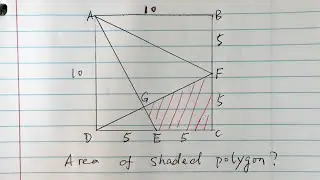 A 10 B
5
10 F
G 5
D 5 E 5 C
Area of shaded polygon?